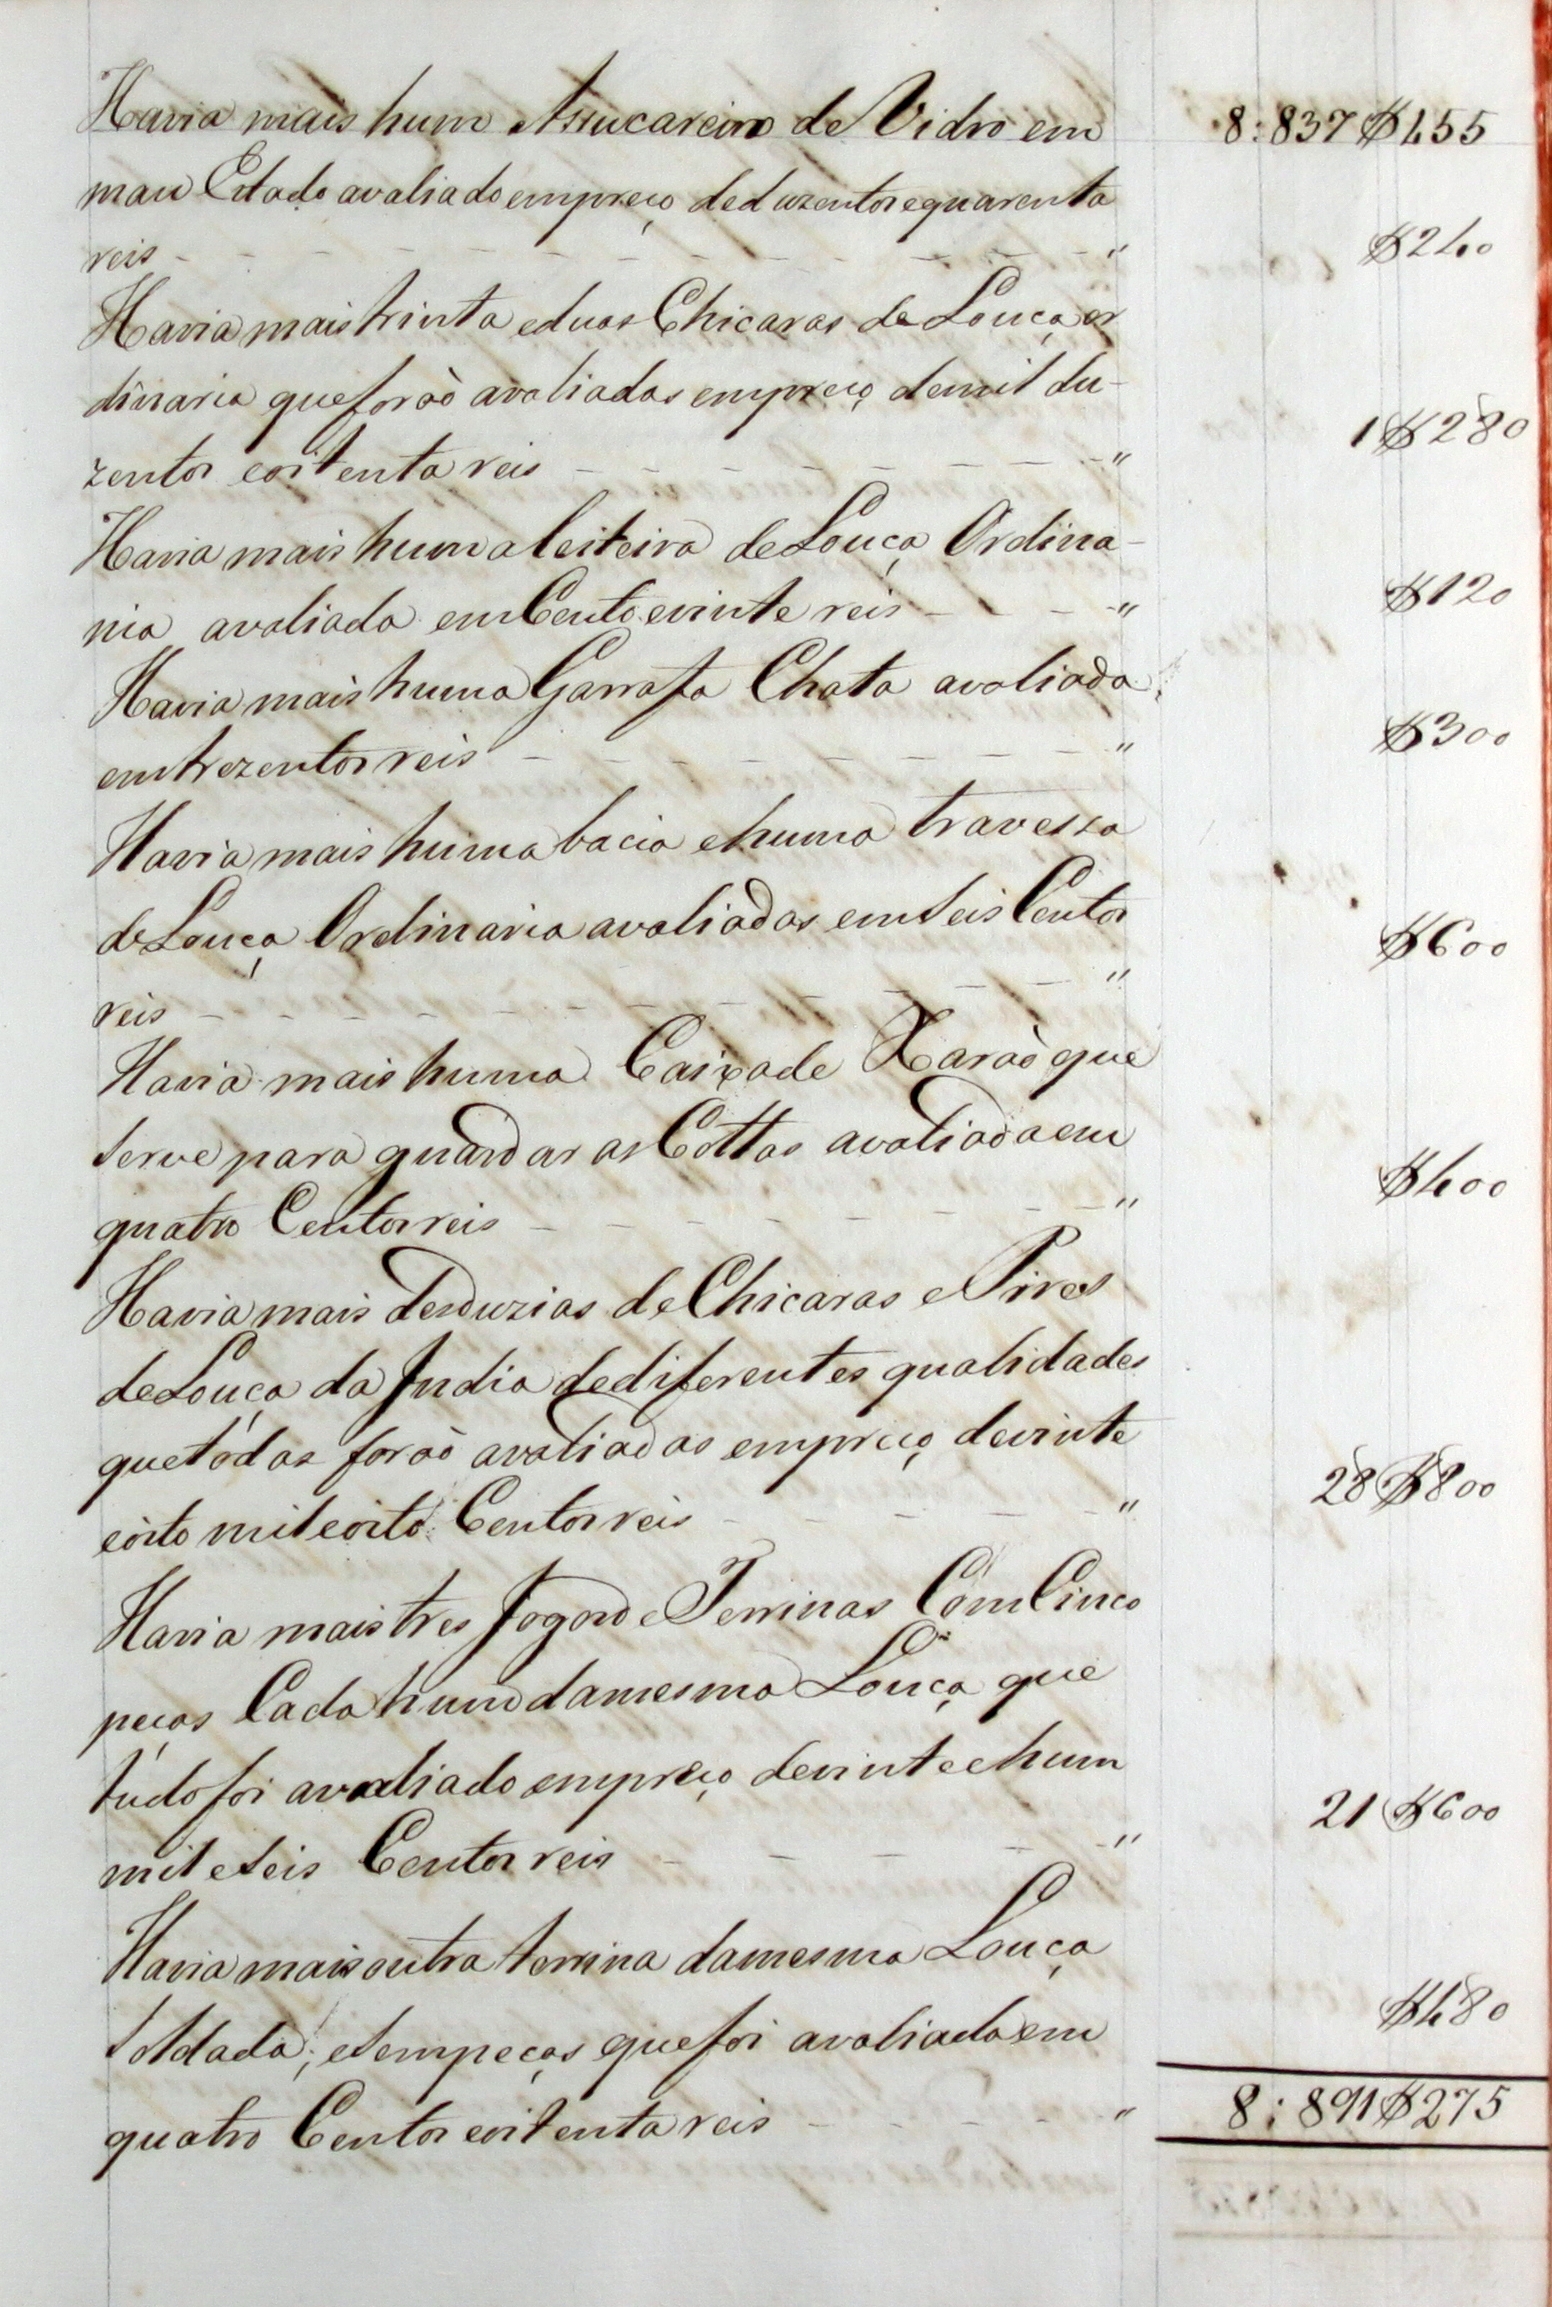 Havia mais hum Assucareiro de Vidro em 8:837$455
mau Estado avaliado em preço de duzentos e quarenta
reis - - - - - - - - - - - - " $240
Havia mais trinta e duas Chicaras de Louça or
dinaria que foraò avaliadas em preço de mil du-
zentos e oitenta reis - - - - - - - - " 1$280
Havia mais huma leiteira de Louça Ordina-
ria avaliada em Cento e vinte reis - - - - " $120
Havia mais huma Garrafa Chata avaliada
em trezentos reis - - - - - - - - " $300
Havia mais huma bacia e huma travessa
de Louça Ordinaria avaliadas em Seis Centos
reis - - - - - - - - - - - - " $600
Havia mais huma Caixa de Xaraò que
Serve para guardar as Cottas avaliada em
quatro Centos reis - - - - - - - - " $400
Havia mais des duzias de Chicaras e Pires
de Louça da India de diferentes qualidades
que tódas foraò avaliadas em preço de vinte
e oito mil e oito Centos reis - - - - - " 28$800
Havia mais tres Jogos de Terrinas Com Cinco
peças Cada hum da mesma Louça que
tudo foi avaliado em preço de vinte e hum
mil e Seis Centos reis - - - - - " 21$600
Havia mais outra terrina da mesma Louça
Soldada; e Sem peças que foi avaliada em $480
quatro Centos e oitenta reis - - - - - " 8:891$275